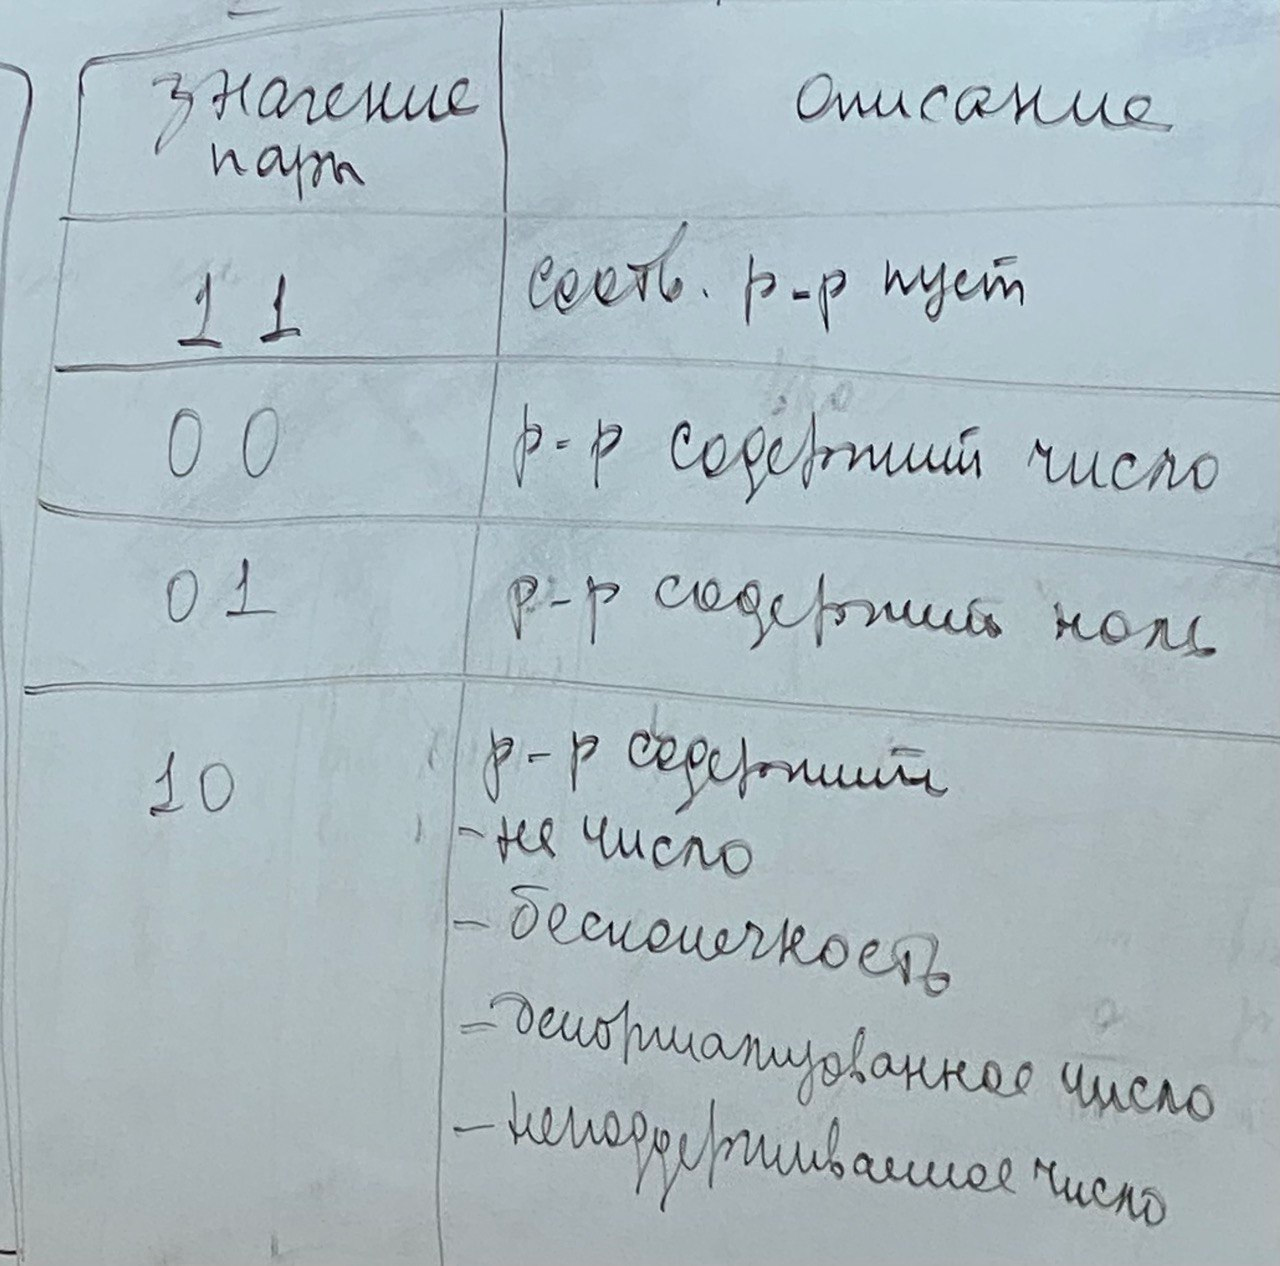 Значение
пары
Описание
11
соотв. р-р пуст
00
р-р содержит число
01
р-р содержит ноль
10
р-р содержит
- не число
- бесконечность
- денормализованное число
- неподдерживаемое число